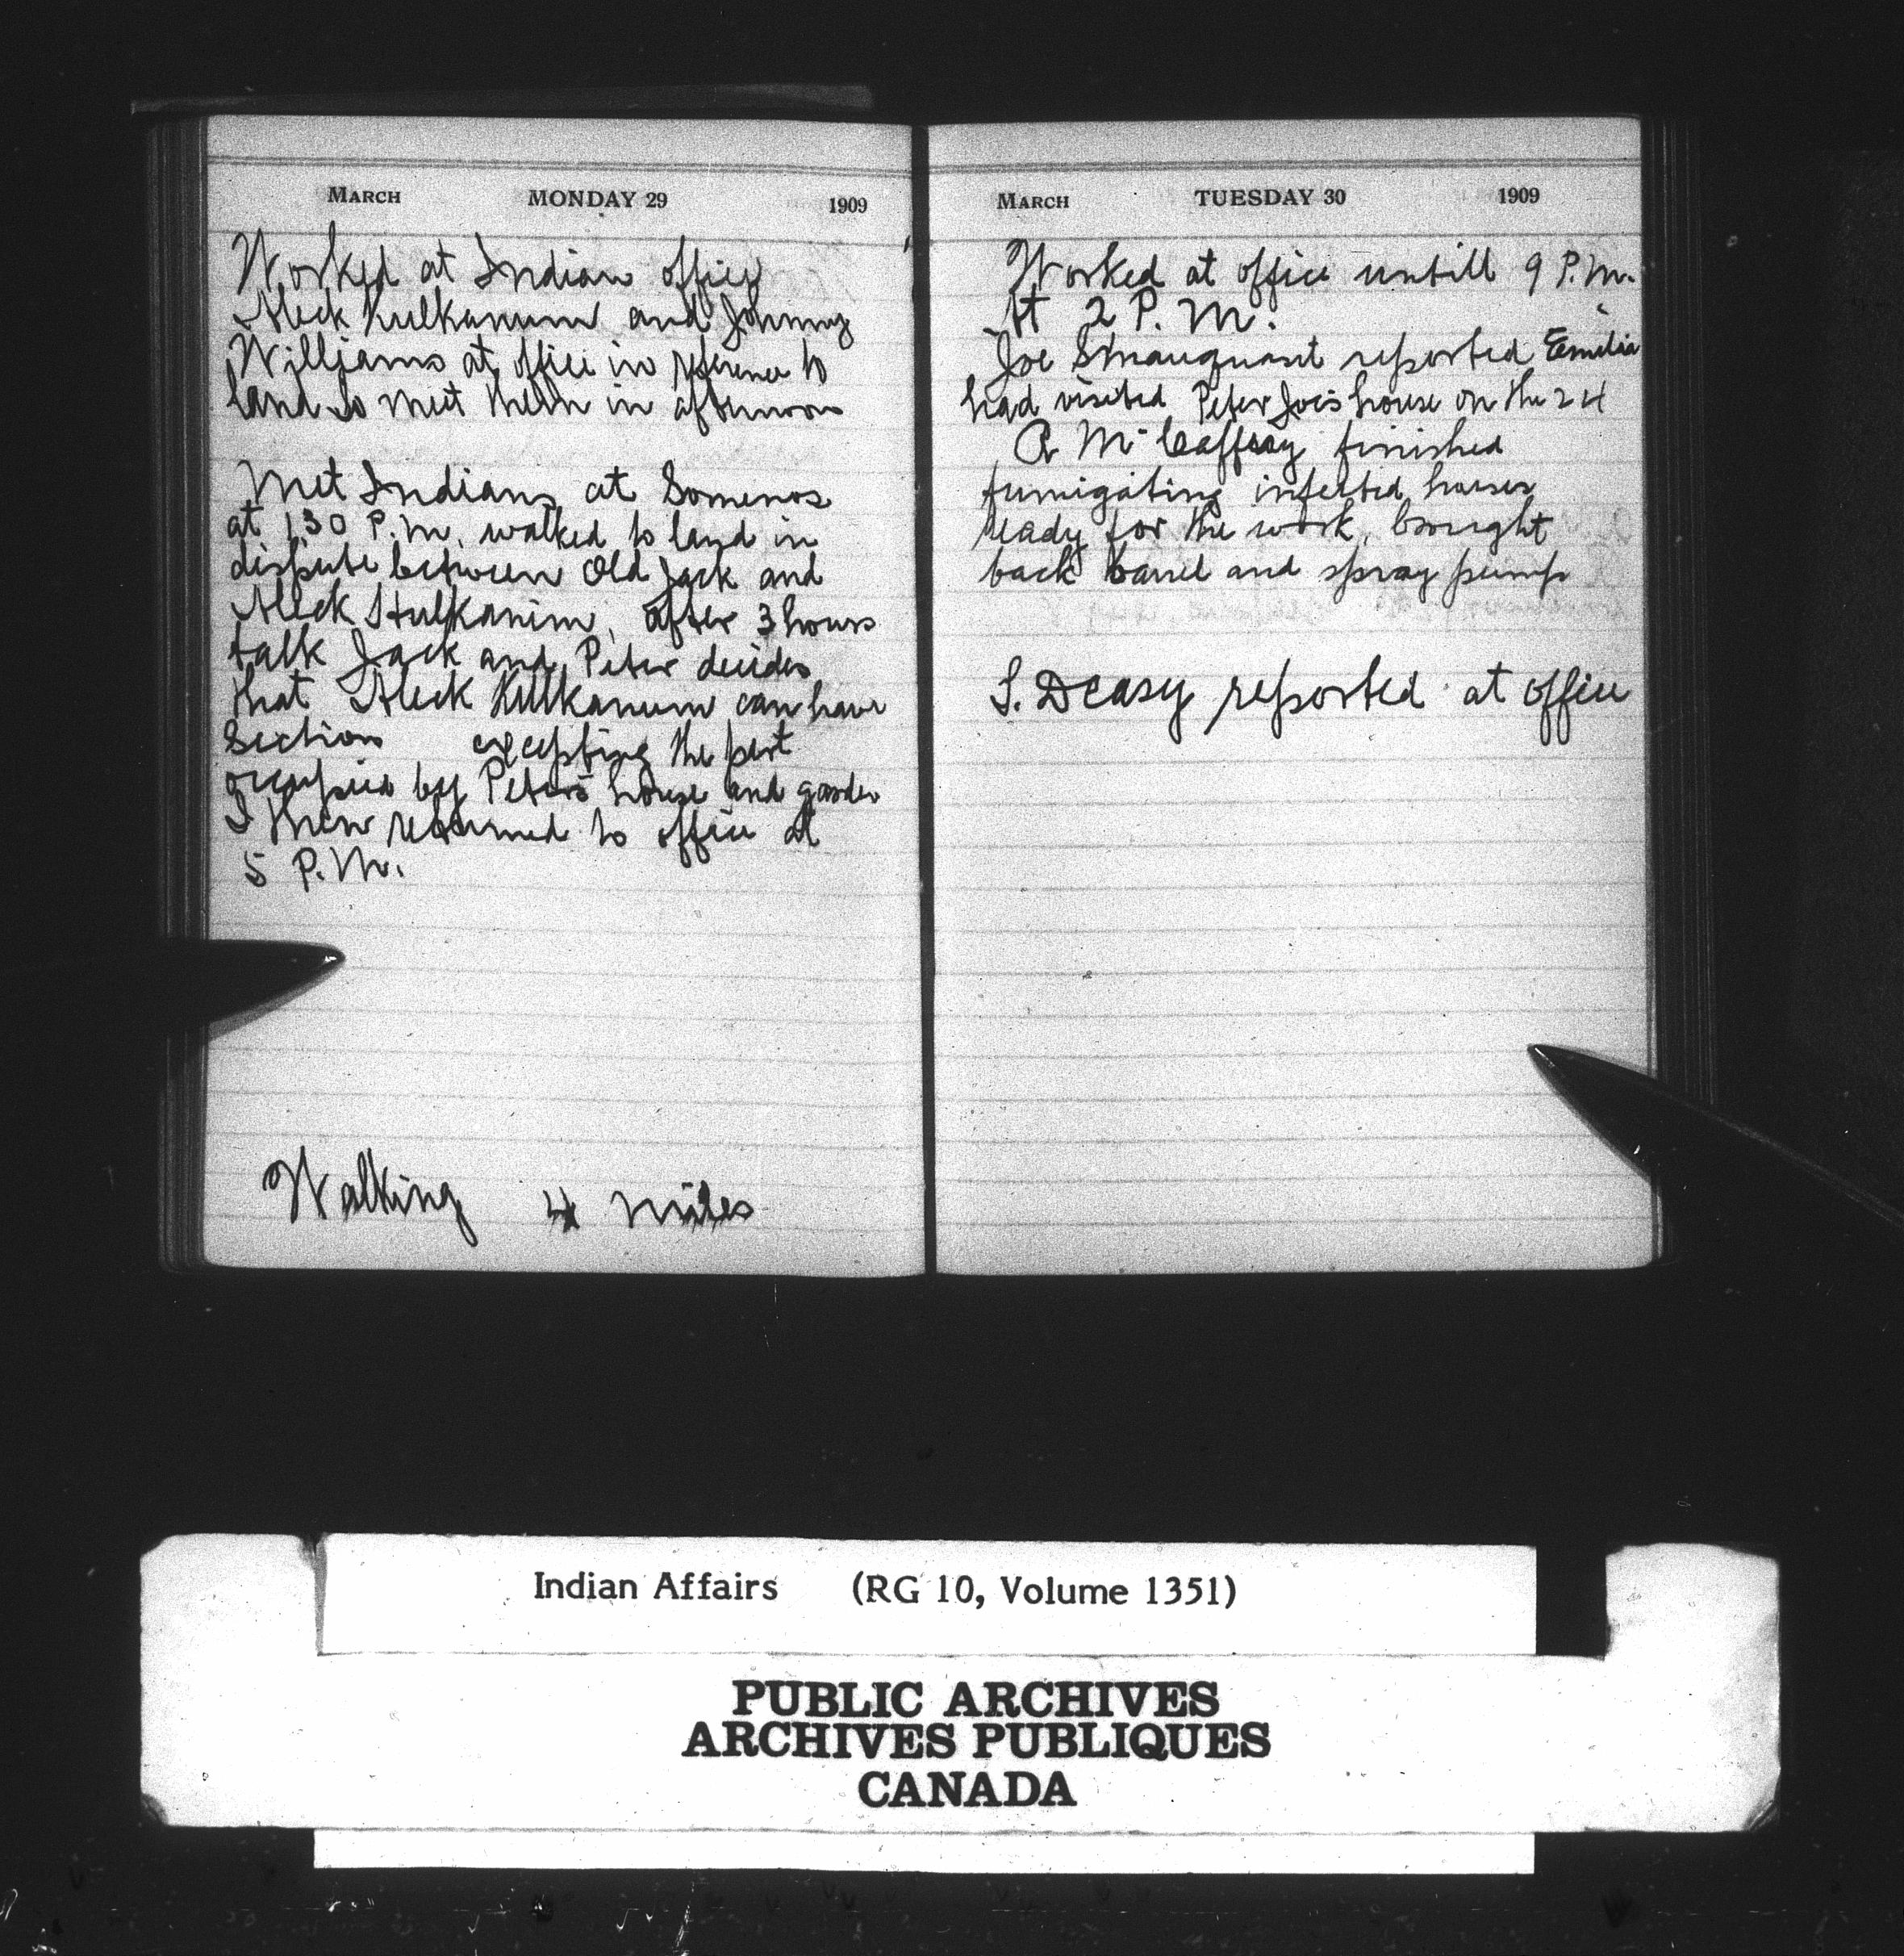 MARCH MONDAY 29 1909
Worked at Indian office
Aleck Kulkanum and Johnny
Williams at office in reference to
land to meet them in afternoon
Met Indians at Somenos
at 1.30 P.M. walked to land in
dispute between Old Jack and
Aleck Hulkanim, after 3 hours
talk Jack and Peter decides
that Aleck Kulkanum can have
Section excepting the part
occupied by Peter's house and garden
I then returned to office at
5 P.M.
Walking 4 miles
MARCH TUESDAY 30 1909
Worked at office untill 9 P.M.
At 2 P.M.
Joe reported Emilia
had visited Peter Joe's house on the 24
A McCaffray finished
fumigating infected houses
ready for the work, brought
back barrel and spray pump
S. Deasy reported at office
Indian Affairs (RG 10, Volume 1351)
PUBLIC ARCHIVES
ARCHIVES PUBLIQUES
CANADA